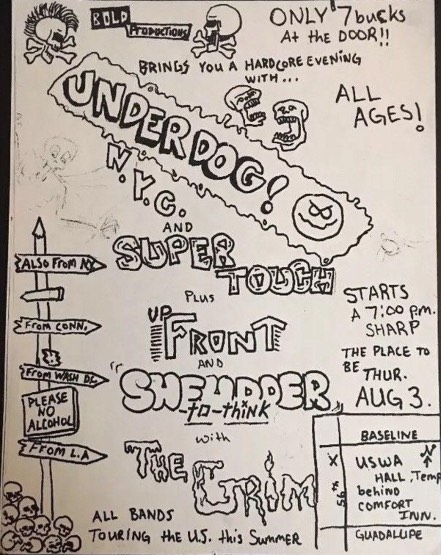 BOLD
PRODUCTIONS
ONLY 7 bucks
AT the DOOR!!
BRINGS YOU A HARDCORE EVENING
WITH...
ALL
AGES!
UNDERDOG!
N.Y.C.
AND
SUPER
TOUCH
ALSO FROM NY.
Plus
UP
FRONT
FROM CONN.
AND
SHEUDDER
-to-think
FROM WASH DC.
PLEASE
NO
ALCOHOL
with
THE
GRIM
FROM L.A
ALL BANDS
TOURING THE U.S. this SUMMER
STARTS
A 7:00 P.M.
SHARP
THE PLACE TO
BE THUR.
AUG 3.
BASELINE
X
N
5th
USWA
HALL, Temp
behind
COMFORT
INN.
GUADALUPE